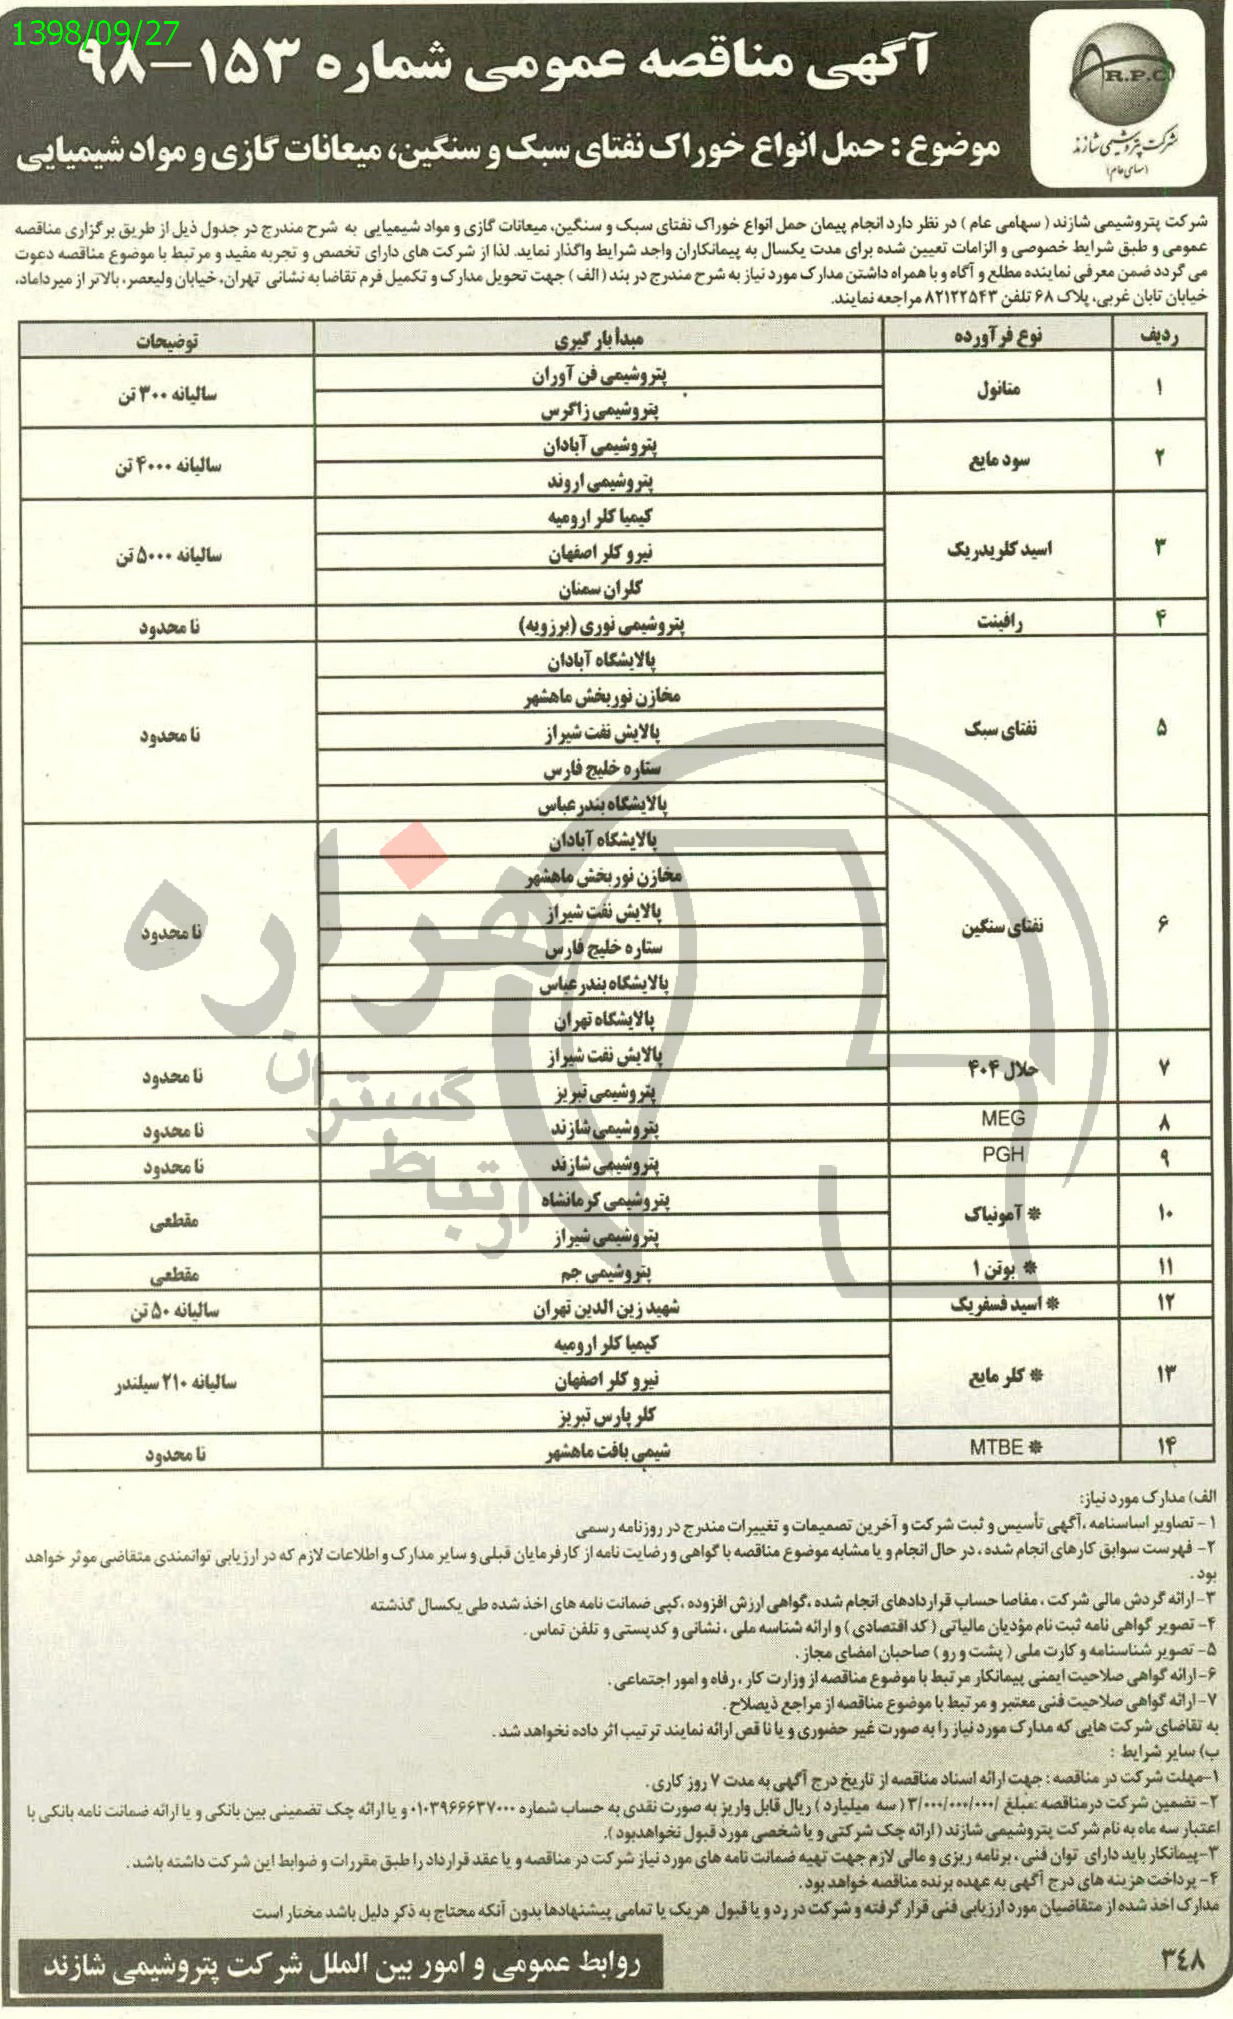 1398/09/27
آگهی مناقصه عمومی شماره ۱۵۳-۹۸
A.R.P.C
شرکت پتروشیمی شازند
(سهامی عام)
موضوع : حمل انواع خوراک نفتای سبک و سنگین، میعانات گازی و مواد شیمیایی
شرکت پتروشیمی شازند ( سهامی عام ) در نظر دارد انجام پیمان حمل انواع خوراک نفتای سبک و سنگین، میعانات گازی و مواد شیمیایی به شرح مندرج در جدول ذیل از طریق برگزاری مناقصه
عمومی و طبق شرایط خصوصی و الزامات تعیین شده برای مدت یکسال به پیمانکاران واجد شرایط واگذار نماید. لذا از شرکت های دارای تخصص و تجربه مفید و مرتبط با موضوع مناقصه دعوت
می گردد ضمن معرفی نماینده مطلع و آگاه و با همراه داشتن مدارک مورد نیاز به شرح مندرج در بند ( الف ) جهت تحویل مدارک و تکمیل فرم تقاضا به نشانی تهران، خیابان ولیعصر، بالاتر از میرداماد،
خیابان تابان غربی، پلاک ۶۸ تلفن ۸۲۱۲۲۵۴۳ مراجعه نمایند.
ردیف نوع فرآورده مبدأ بارگیری توضیحات
۱ متانول پتروشیمی فن آوران سالیانه ۳۰۰ تن
پتروشیمی زاگرس
۲ سود مایع پتروشیمی آبادان سالیانه ۴۰۰۰ تن
پتروشیمی اروند
۳ اسید کلریدریک کیمیا کلر ارومیه سالیانه ۵۰۰۰ تن
نیرو کلر اصفهان
کلران سمنان
۴ رافینت پتروشیمی نوری (برزویه) نا محدود
۵ نفتای سبک پالایشگاه آبادان نا محدود
مخازن نوربخش ماهشهر
پالایش نفت شیراز
ستاره خلیج فارس
پالایشگاه بندرعباس
۶ نفتای سنگین پالایشگاه آبادان نا محدود
مخازن نوربخش ماهشهر
پالایش نفت شیراز
ستاره خلیج فارس
پالایشگاه بندرعباس
پالایشگاه تهران
۷ حلال ۴۰۴ پالایش نفت شیراز نا محدود
پتروشیمی تبریز
۸ MEG پتروشیمی شازند نا محدود
۹ PGH پتروشیمی شازند نا محدود
۱۰ * آمونیاک پتروشیمی کرمانشاه مقطعی
پتروشیمی شیراز
۱۱ * بوتن ۱ پتروشیمی جم مقطعی
۱۲ * اسید فسفریک شهید زین الدین تهران سالیانه ۵۰ تن
۱۳ * کلر مایع کیمیا کلر ارومیه سالیانه ۲۱۰ سیلندر
نیرو کلر اصفهان
کلر پارس تبریز
۱۴ * MTBE شیمی بافت ماهشهر نا محدود
هزاره
گستران
ارتباط
الف) مدارک مورد نیاز:
۱- تصاویر اساسنامه ،آگهی تأسیس و ثبت شرکت و آخرین تصمیمات و تغییرات مندرج در روزنامه رسمی
۲- فهرست سوابق کارهای انجام شده ، در حال انجام و یا مشابه موضوع مناقصه با گواهی و رضایت نامه از کارفرمایان قبلی و سایر مدارک و اطلاعات لازم که در ارزیابی توانمندی متقاضی موثر خواهد
بود .
۳- ارائه گردش مالی شرکت ، مفاصا حساب قراردادهای انجام شده ،گواهی ارزش افزوده ،کپی ضمانت نامه های اخذ شده طی یکسال گذشته
۴- تصویر گواهی نامه ثبت نام مؤدیان مالیاتی ( کد اقتصادی ) و ارائه شناسه ملی ، نشانی و کدپستی و تلفن تماس .
۵- تصویر شناسنامه و کارت ملی ( پشت و رو ) صاحبان امضای مجاز .
۶- ارائه گواهی صلاحیت ایمنی پیمانکار مرتبط با موضوع مناقصه از وزارت کار ، رفاه و امور اجتماعی .
۷- ارائه گواهی صلاحیت فنی معتبر و مرتبط با موضوع مناقصه از مراجع ذیصلاح .
به تقاضای شرکت هایی که مدارک مورد نیاز را به صورت غیر حضوری و یا ناقص ارائه نمایند ترتیب اثر داده نخواهد شد .
ب) سایر شرایط :
۱-مهلت شرکت در مناقصه : جهت ارائه اسناد مناقصه از تاریخ درج آگهی به مدت ۷ روز کاری .
۲- تضمین شرکت درمناقصه :مبلغ /۳/۰۰۰/۰۰۰/۰۰۰( سه میلیارد ) ریال قابل واریز به صورت نقدی به حساب شماره ۰۱۰۳۹۶۶۶۳۷۰۰۰ و یا ارائه چک تضمینی بین بانکی و یا ارائه ضمانت نامه بانکی با
اعتبار سه ماه به نام شرکت پتروشیمی شازند ( ارائه چک شرکتی و یا شخصی مورد قبول نخواهدبود ).
۳-پیمانکار باید دارای توان فنی ، برنامه ریزی و مالی لازم جهت تهیه ضمانت نامه های مورد نیاز شرکت در مناقصه و یا عقد قرارداد را طبق مقررات و ضوابط این شرکت داشته باشد .
۴- پرداخت هزینه های درج آگهی به عهده برنده مناقصه خواهد بود .
مدارک اخذ شده از متقاضیان مورد ارزیابی فنی قرار گرفته و شرکت در رد و یا قبول هریک یا تمامی پیشنهادها بدون آنکه محتاج به ذکر دلیل باشد مختار است
۳۴۸
روابط عمومی و امور بین الملل شرکت پتروشیمی شازند